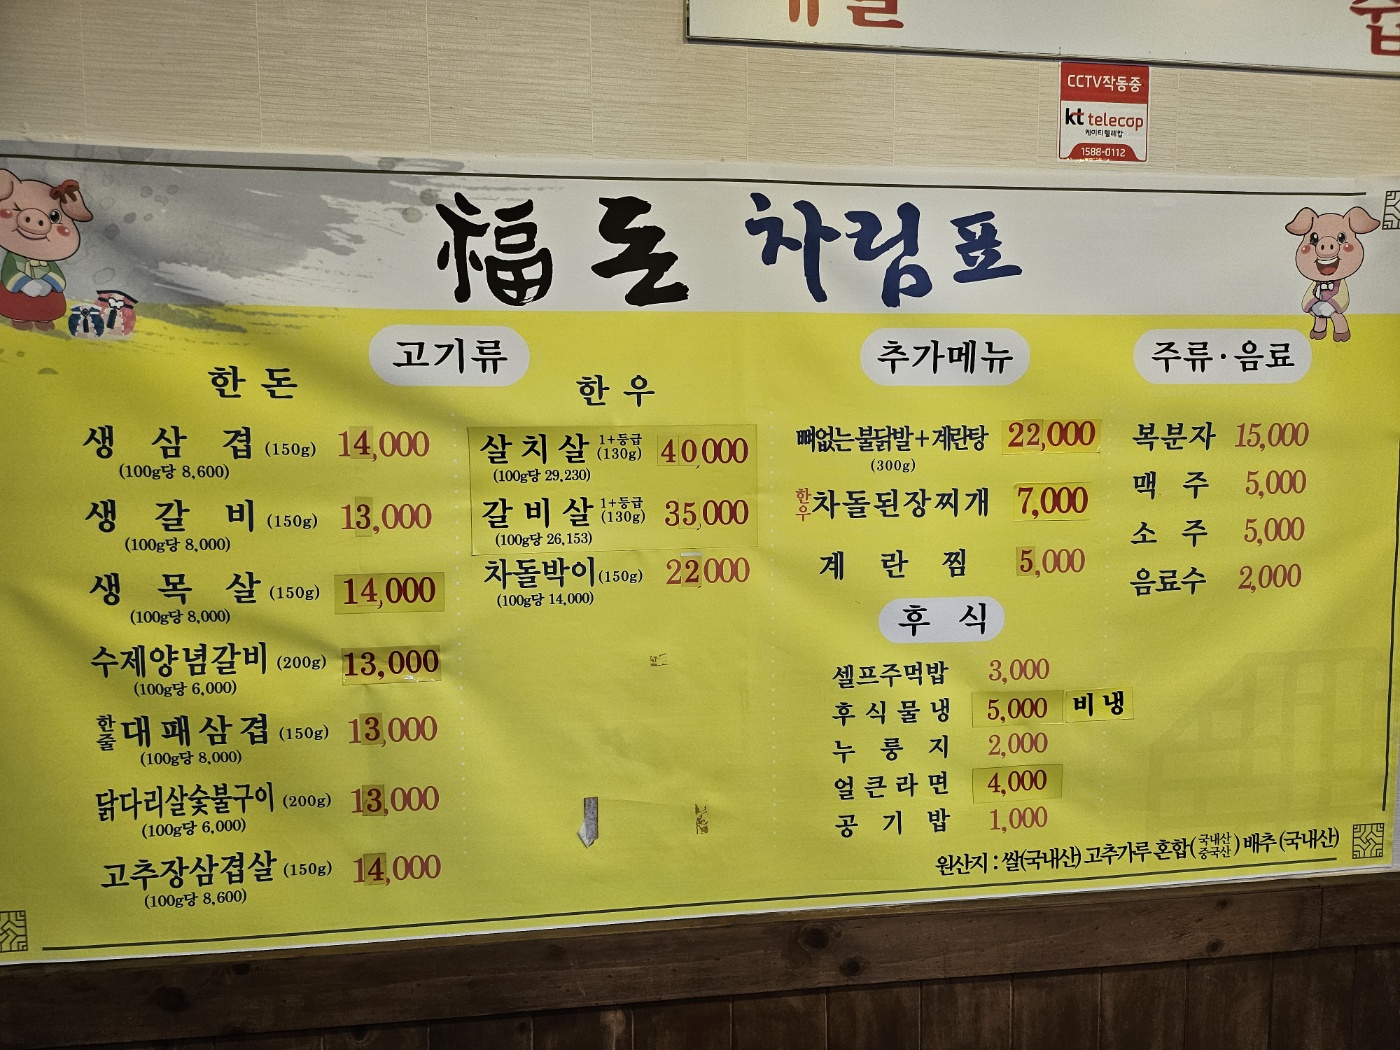 CCTV작동중
kt telecop
케이티텔레캅
1588-0112
福돈 차림표
고기류
한돈
생삼겹 (150g) 14,000
(100g당 8,600)
생갈비 (150g) 13,000
(100g당 8,000)
생목살 (150g) 14,000
(100g당 8,000)
수제양념갈비 (200g) 13,000
(100g당 6,000)
한줄 대패삼겹 (150g) 13,000
(100g당 8,000)
닭다리살숯불구이 (200g) 13,000
(100g당 6,000)
고추장삼겹살 (150g) 14,000
(100g당 8,600)
한우
살치살 1+등급 (130g) 40,000
(100g당 29,230)
갈비살 1+등급 (130g) 35,000
(100g당 26,153)
차돌박이 (150g) 22,000
(100g당 14,000)
추가메뉴
뼈없는불닭발+계란탕 22,000
(300g)
한우 차돌된장찌개 7,000
계란찜 5,000
후식
셀프주먹밥 3,000
후식물냉 5,000 비냉
누룽지 2,000
얼큰라면 4,000
공기밥 1,000
주류·음료
복분자 15,000
맥주 5,000
소주 5,000
음료수 2,000
원산지 : 쌀(국내산) 고추가루 혼합(국내산 중국산) 배추 (국내산)